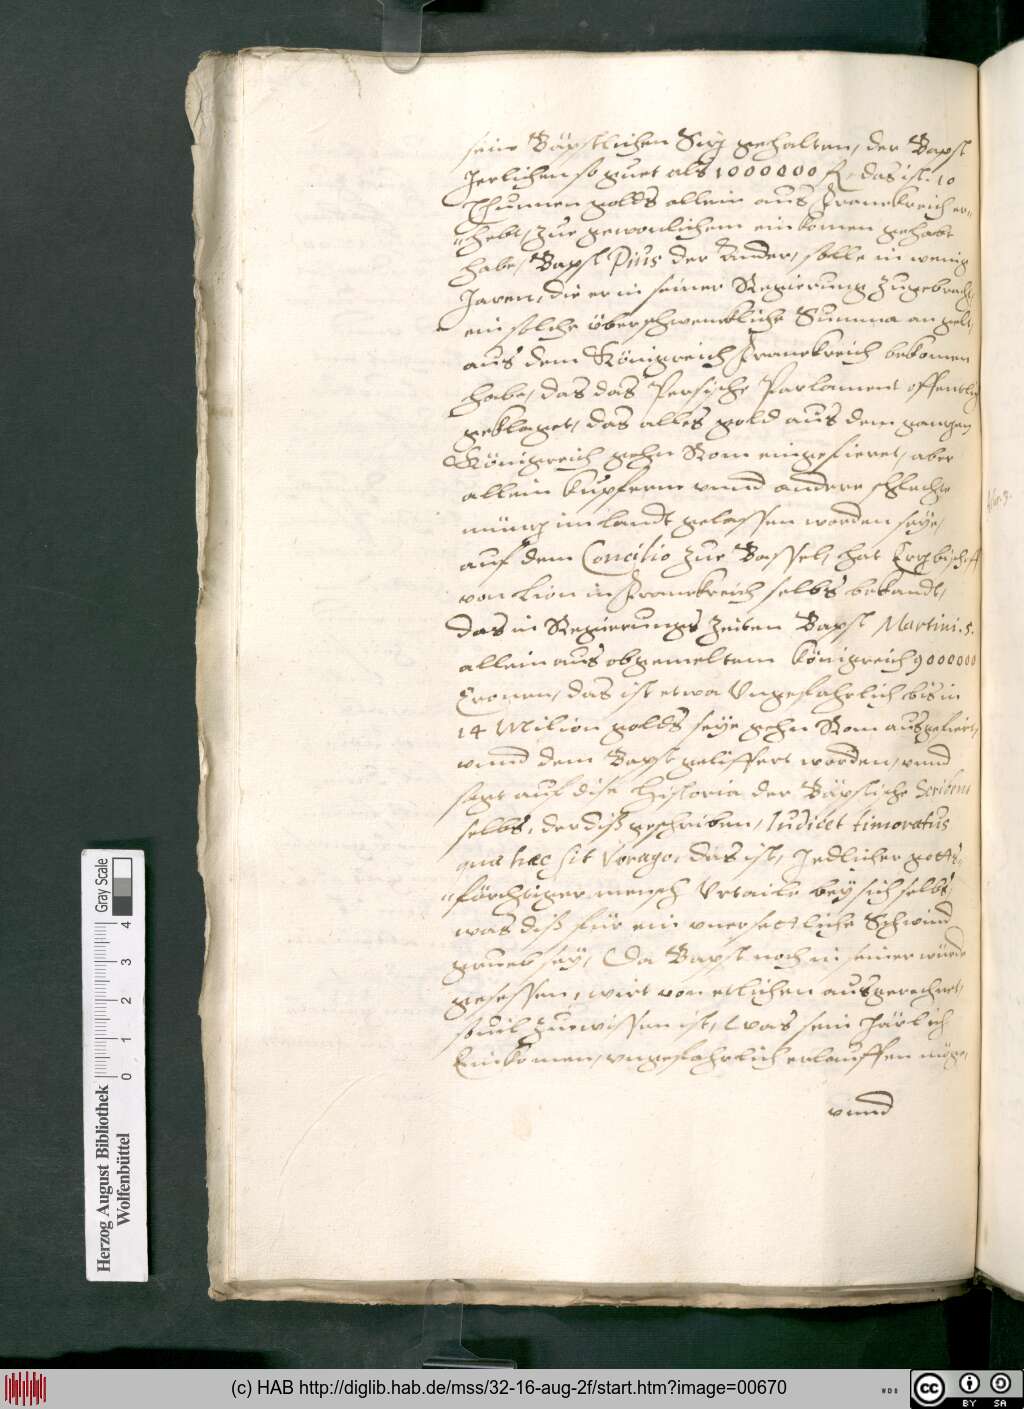 seine Bäpstlichen Sitz gehalten, der Bapst
Jerlichen so guet als 1000000 fl. das ist 10
Thunnen golds allein aus Franckreich er-
-hebt, zue gewonlichem einkomen gehabt
habe, Bapst Pius der Ander, solle in wenig
Jaren, die er in seiner Regierung zugebracht,
ein solche überschwenckliche Summa an gelt,
aus dem Königreich Franckreich bekomen
habe, das das Parisische Parlament offentlich
geklaget, das alles gold aus dem gantzen
Königreich gehn Rom eingefieret, aber
allein kupferne vnnd andere schlechte
müntz im landt gelassen worden seye,
auf dem Concilio zue Bassel, hat Ertzbischoff
von Lion in Franckreich selbs bekandt,
das in Regierungs Zeiten Bapst Martini. 5.
allein aus obgemeltem königreich 9000000
Cronen, das ist etwa Vngefahrlich bis in
14 Milion golds seye gehn Rom ausgefiert,
vnnd dem Bapst geliffert worden, vnnd
sagt auf dise Historia der Bäpstische Scribent
selbs, der diß geschriben, Iudicet timoratus
quæ hæc sit Vorago, das ist, Jedlicher gotts-
-förchtiger mensch Vrtaile bey sich selbs,
was diß für ein vnersettliche Schwind
grueb sey, Da Bapst noch in seiner würde
gesessen, wirt von etlichen ausgerechnet,
souil zuewissen ist, was sein Järlich
Einkomen, vngefahrlich erlauffen möge,
vnnd
Herzog August Bibliothek
Wolfenbüttel
0 1 2 3 4
Gray Scale
(c) HAB http://diglib.hab.de/mss/32-16-aug-2f/start.htm?image=00670
WDB
cc BY SA